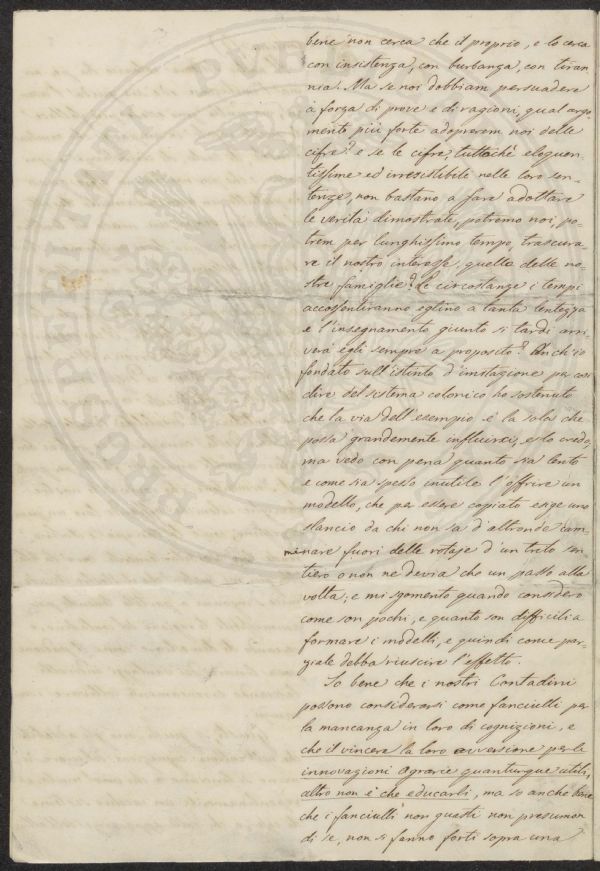 bene non cerca che il proprio, e lo cerca
con insistenza, con burbanza, con tiran
nia. Ma se noi dobbiam persuadere
a forza di prove e di ragioni, qual argo
mento più forte adoprerem noi delle
cifre? e se le cifre, tuttochè eloquen
tissime ed irresistibili nelle loro sen-
tenze, non bastano a fare adottare
le verità dimostrate, potremo noi, po-
trem per lunghissimo tempo, trascura
re il nostro interesse, quello delle no-
stre famiglie? Le circostanze i tempi
acconsentiranno eglino a tanta lentezza
e l'insegnamento giunto sì tardi arri
verà egli sempre a proposito? Anch'io
fondato sull'istinto d'imitazione per così
dire del sistema colonico ho sostenuto
che la via dell'esempio è la sola che
possa grandemente influirvi, e lo credo,
ma vedo con pena quanto sia lento
e come sia spesso inutile l'offrire un
modello, che per essere copiato esige uno
slancio da chi non sa d'altronde cam
minare fuori delle rotaje d'un trito sen
tiero o non ne devia che un passo alla
volta; e mi sgomento quando considero
come son pochi, e quanto son difficili a
formare i modelli, e quindi come par-
ziale debba riuscire l'effetto.
So bene che i nostri Contadini
possono considerarsi come fanciulli per
la mancanza in loro di cognizioni, e
che il vincere la loro avversione per le
innovazioni agrarie quantunque utili,
altro non è che educarli, ma so anche bene
che i fanciulli non guasti non presumon
di se, non si fanno forti sopra una